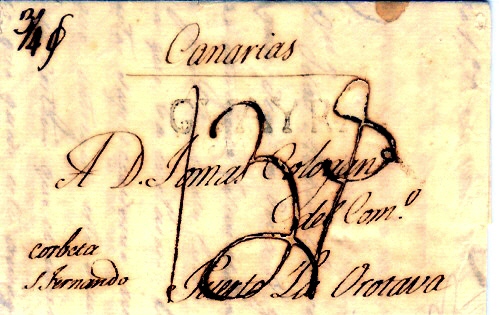 3/4 
Canarias
GUAYRA
A D. Tomas Cologan
del Com.º
Puerto La Orotava
corbeta
S. Fernando